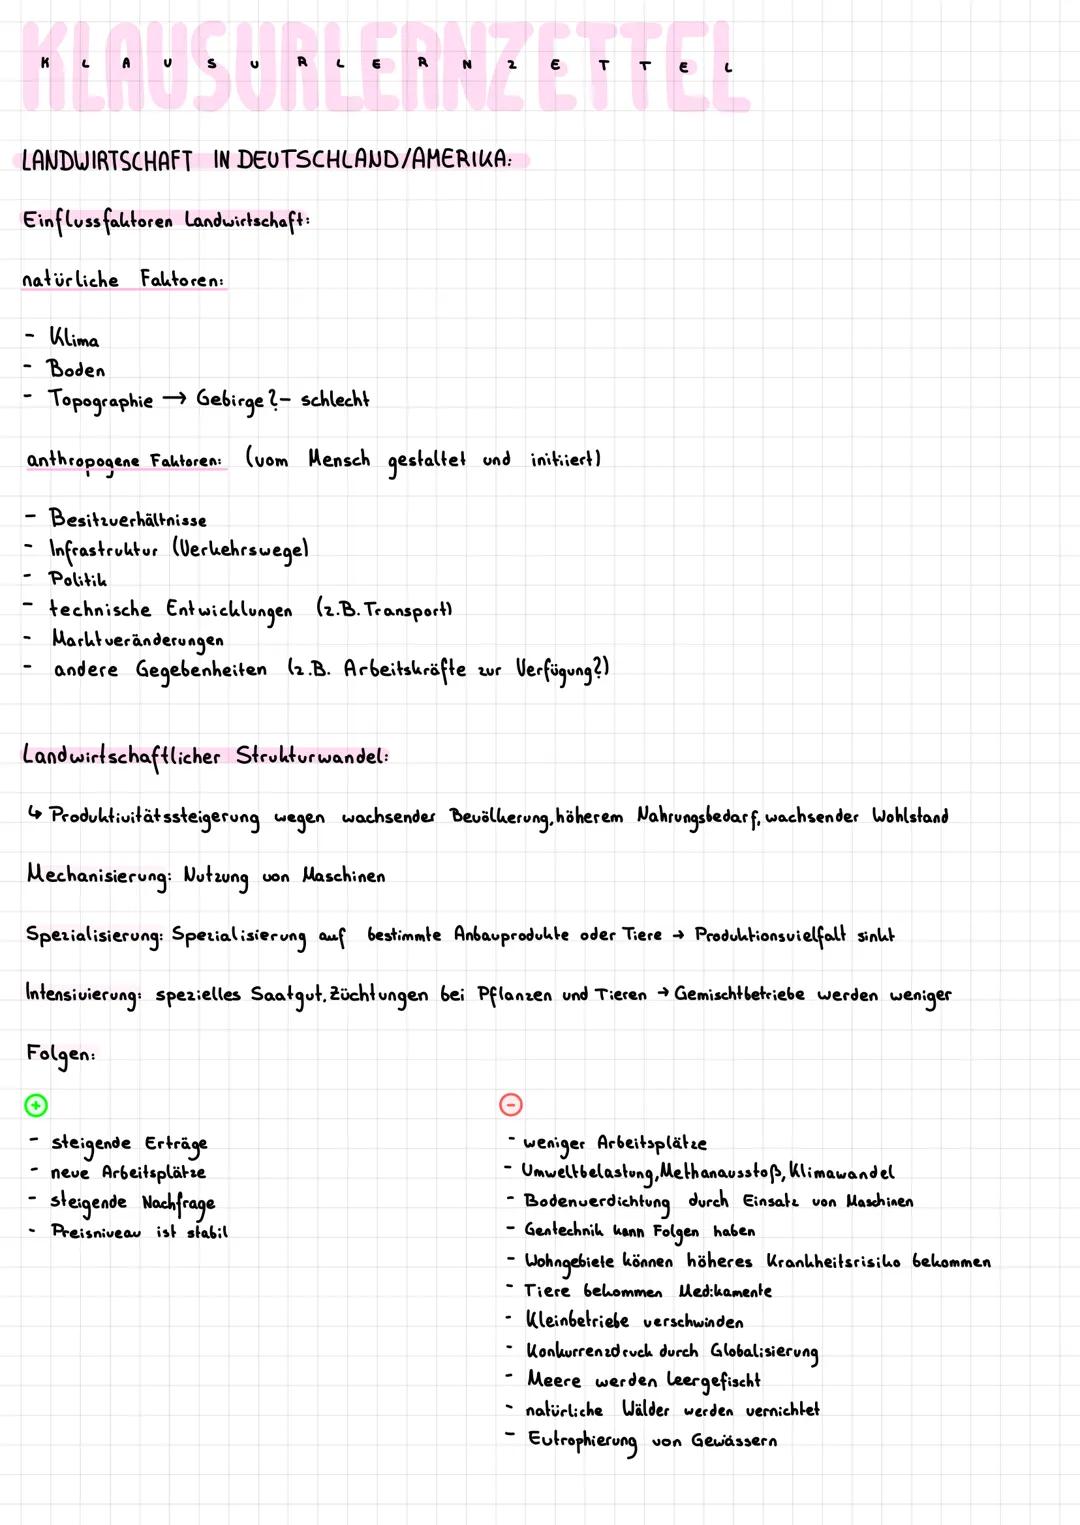 KLAUSURLERNZETTEL
K L A U S U R L E R N Z E T T E L
LANDWIRTSCHAFT IN DEUTSCHLAND/AMERIKA:
Einflussfaktoren Landwirtschaft:
natürliche Faktoren:
- Klima
- Boden
- Topographie → Gebirge?- schlecht
anthropogene Faktoren: (vom Mensch gestaltet und initiiert)
- Besitzverhältnisse
- Infrastruktur (Verkehrswege)
- Politik
- technische Entwicklungen (z.B. Transport)
- Marktveränderungen
- andere Gegebenheiten (z.B. Arbeitskräfte zur Verfügung?)
Landwirtschaftlicher Strukturwandel:
↳ Produktivitätssteigerung wegen wachsender Bevölkerung, höherem Nahrungsbedarf, wachsender Wohlstand
Mechanisierung: Nutzung von Maschinen
Spezialisierung: Spezialisierung auf bestimmte Anbauprodukte oder Tiere → Produktionsvielfalt sinkt
Intensivierung: spezielles Saatgut, Züchtungen bei Pflanzen und Tieren → Gemischtbetriebe werden weniger
Folgen:
+
- steigende Erträge
- neue Arbeitsplätze
- steigende Nachfrage
- Preisniveau ist stabil
-
- weniger Arbeitsplätze
- Umweltbelastung, Methanausstoß, Klimawandel
- Bodenverdichtung durch Einsatz von Maschinen
- Gentechnik kann Folgen haben
- Wohngebiete können höheres Krankheitsrisiko bekommen
- Tiere bekommen Medikamente
- Kleinbetriebe verschwinden
- Konkurrenzdruck durch Globalisierung
- Meere werden leergefischt
- natürliche Wälder werden vernichtet
- Eutrophierung von Gewässern